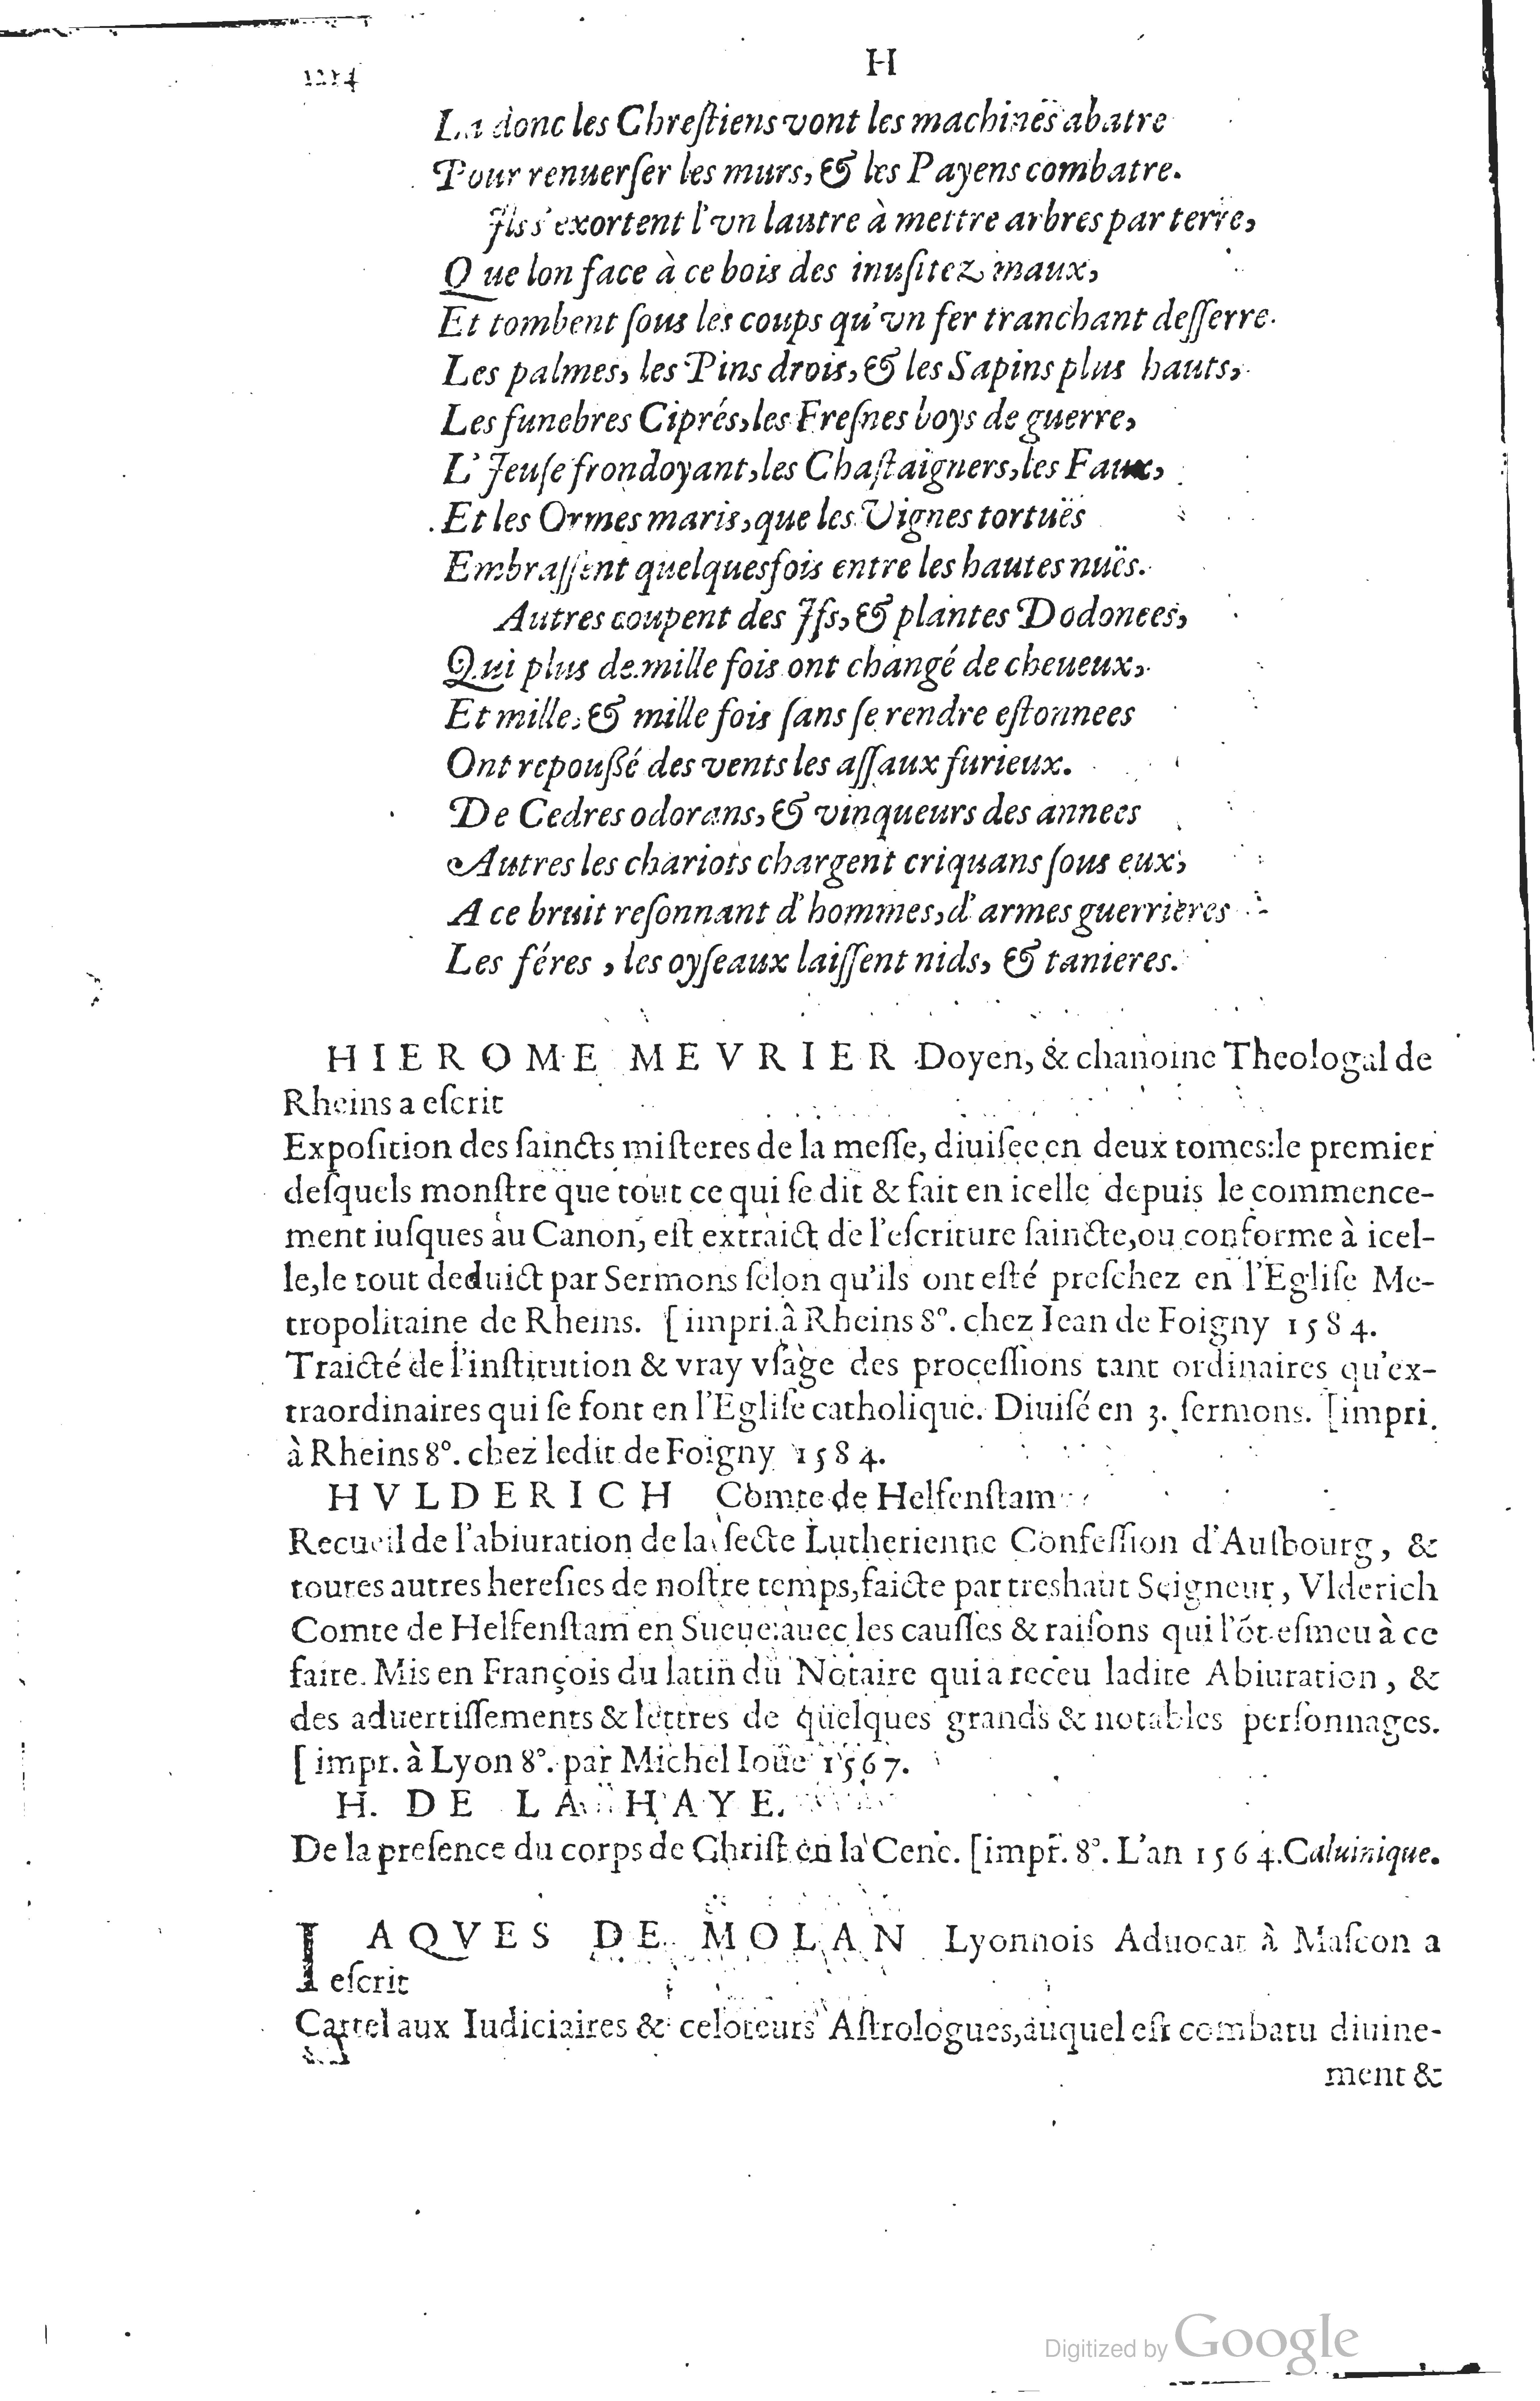 1214
H
La donc les Chreſtiens vont les machinës abatre
Pour renuerſer les murs, & les Payens combatre.
Ils s'exortent l'vn lautre à mettre arbres par terre,
Que lon face à ce bois des inuſitez maux,
Et tombent ſous les coups qu'vn fer tranchant deſſerre.
Les palmes, les Pins drois, & les Sapins plus hauts,
Les funebres Ciprés, les Freſnes boys de guerre,
L'Ieuſe frondoyant, les Chaſtaigners, les Faux,
Et les Ormes maris, que les Vignes tortuës
Embraſſent quelquesfois entre les hautes nuës.
Autres coupent des Ifs, & plantes Dodonees,
Qui plus de mille fois ont changé de cheueux,
Et mille, & mille fois ſans ſe rendre eſtonnees
Ont repouſſé des vents les aſſaux furieux.
De Cedres odorans, & vinqueurs des annees
Autres les chariots chargent criquans ſous eux,
A ce bruit reſonnant d'hommes, d'armes guerrieres
Les féres, les oyſeaux laiſſent nids, & tanieres.
HIEROME MEVRIER Doyen, & chanoine Theologal de
Rheins a eſcrit
Expoſition des ſaincts miſteres de la meſſe, diuiſee en deux tomes:le premier
deſquels monſtre que tout ce qui ſe dit & fait en icelle depuis le commence-
ment iuſques au Canon, eſt extraict de l'eſcriture ſaincte, ou conforme à icel-
le, le tout deduict par Sermons ſelon qu'ils ont eſté preſchez en l'Egliſe Me-
tropolitaine de Rheins. [impri. à Rheins 8°. chez Iean de Foigny 1584.
Traicté de l'inſtitution & vray vſage des proceſſions tant ordinaires qu'ex-
traordinaires qui ſe font en l'Egliſe catholique. Diuiſé en 3. ſermons. [impri.
à Rheins 8°. chez ledit de Foigny 1584.
HVLDERICH Comte de Helfenſtam
Recueil de l'abiuration de la ſecte Lutherienne Confeſſion d'Auſbourg, &
toutes autres hereſies de noſtre temps, faicte par treshaut Seigneur, Vlderich
Comte de Helfenſtam en Sueue:auec les cauſſes & raiſons qui l'ōt eſmeu à ce
faire. Mis en François du latin du Notaire qui a receu ladite Abiuration, &
des aduertiſſements & lettres de quelques grands & notables perſonnages.
[impr. à Lyon 8°. par Michel Ioüe 1567.
H. DE LA HAYE.
De la preſence du corps de Chriſt en la Cene. [impr. 8°. L'an 1564. Caluinique.
IAQVES DE MOLAN Lyonnois Aduocat à Maſcon a
eſcrit
Cartel aux Iudiciaires & celoteurs Aſtrologues, auquel eſt combatu diuine-
ment &
Digitized by Google